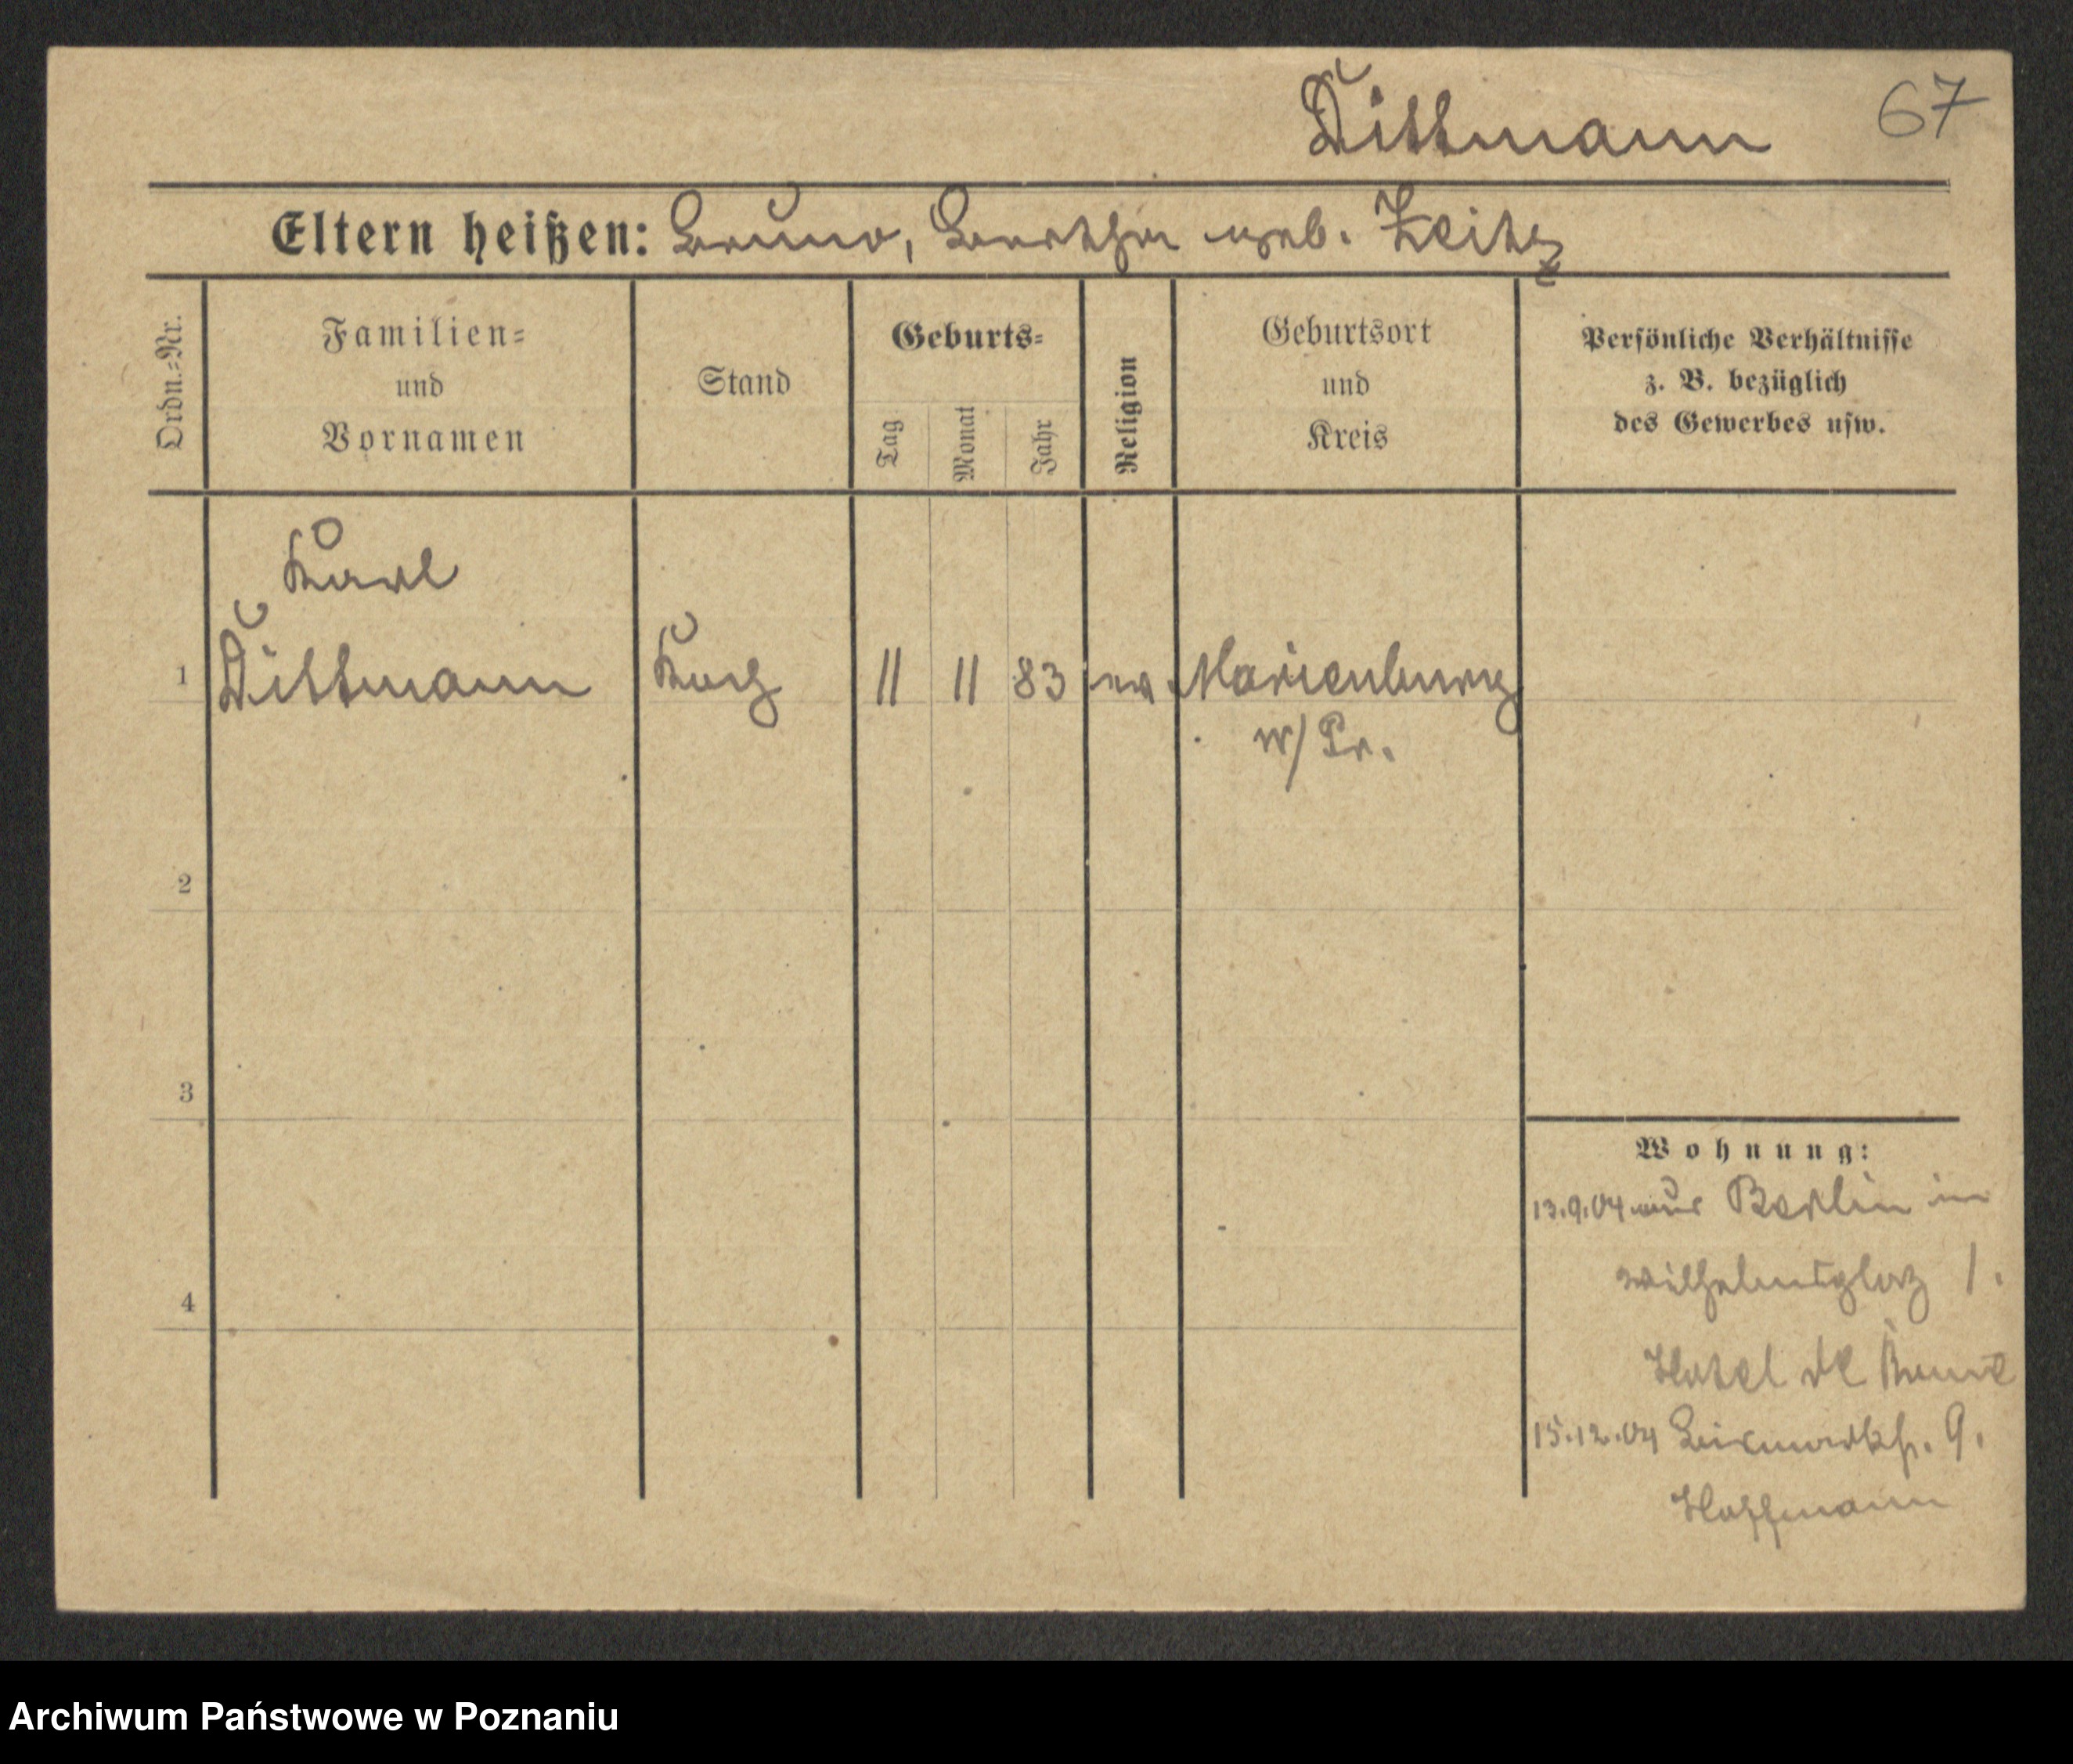 Dittmann 67
Eltern heißen: Bruno, Bertha geb. Zeitz
Ordn.-Nr.
Familien-
und
Vornamen
Stand
Geburts-
Tag
Monat
Jahr
Religion
Geburtsort
und
Kreis
Persönliche Verhältnisse
z. B. bezüglich
des Gewerbes usw.
Karl
1 Dittmann Koch 11 11 83 ev Marienburg
W/Pr.
2
3
4
Wohnung:
13.9.04 aus Berlin in
Wilhelmsplatz 1.
Hotel de Rome
15.12.04 Bismarckstr. 9.
Hoffmann
Archiwum Państwowe w Poznaniu